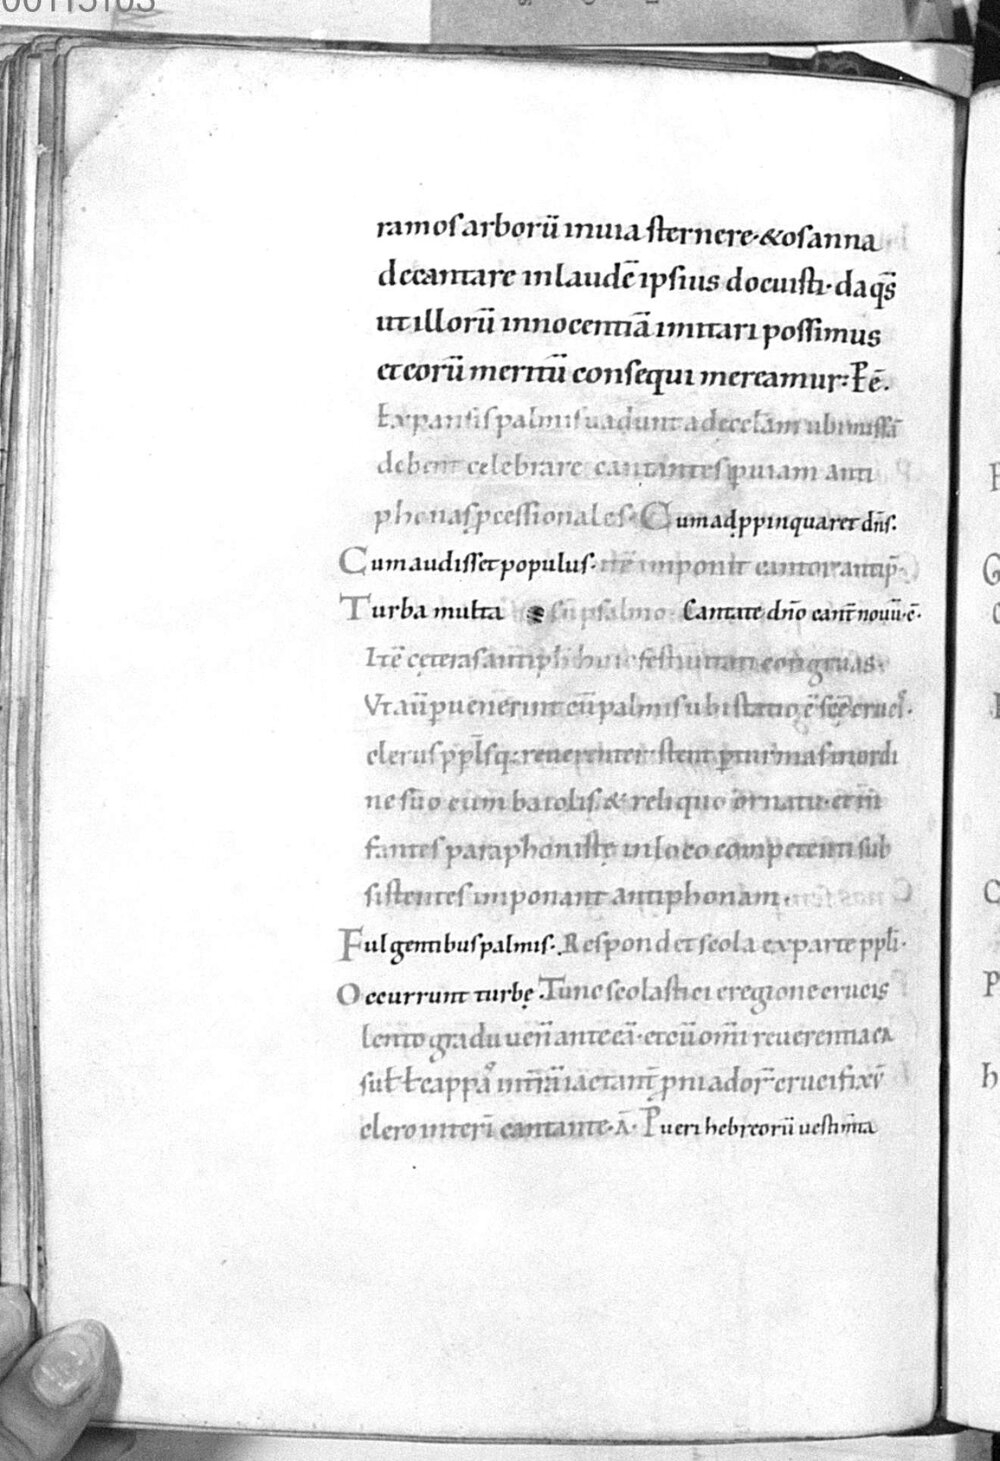 00115103
ramos arborū in uia sternere·&osanna
decantare in laudē ipsius docuisti·da qs̄
ut illorū innocentiā imitari possimus
et eorū meritū consequi mereamur:P̄ē.
Expansis palmis uadunt ad ecclam ubi missā
debent celebrare cantantes ipuiam anti
phonas pcessionales· Cum adppinquaret dn̄s.
Cum audisset populus· itē imponit cantor antip̄·
Turba multa cū psalmo· Cantate dn̄o cant̄ nouū·ē·
Itē cęteras antiph huic festiuitati congruas·
Vt aū puenerint cū palmis ubi statio ē scę cruc·
clerus pplsq: reuerenter stent p turmas in ordi
ne suo cum baiolis·& reliquo ornatu·et in
fantes paraphonistę in loco competenti sub
sistentes imponant antiphonam·
Fulgentibus palmis· Respondet scola ex parte ppli·
Occurrunt turbę· Tunc scolastici e regione crucis
lento gradu ueniī ante eā·et cū om̄i reuerentia
clero interī cantante·A· Pueri hebreorū uestim̄ta